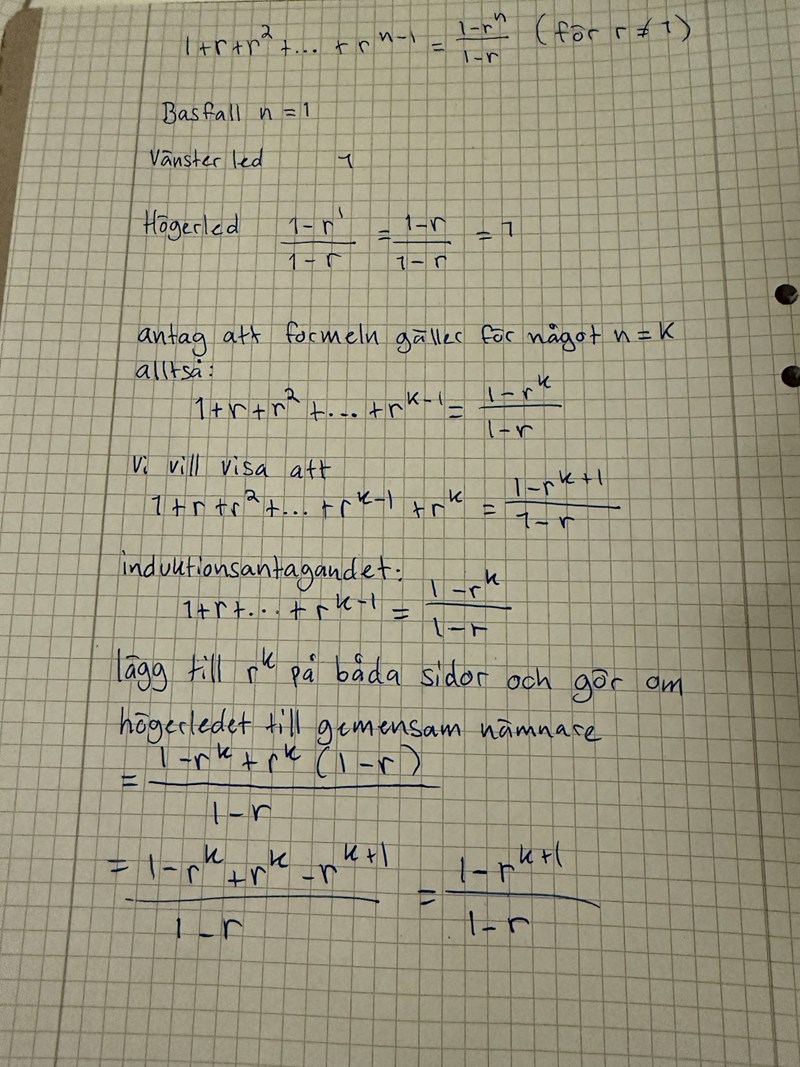 1+r+r²+... + rⁿ⁻¹ = (1-rⁿ)/(1-r) (för r ≠ 1)
Basfall n = 1
Vänsterled 1
Högerled (1-r¹)/(1-r) = (1-r)/(1-r) = 1
antag att formeln gäller för något n = k
alltså:
1+r+r²+...+rᵏ⁻¹ = (1-rᵏ)/(1-r)
Vi vill visa att
1+r+r²+...+rᵏ⁻¹+rᵏ = (1-rᵏ⁺¹)/(1-r)
induktionsantagandet:
1+r+...+rᵏ⁻¹ = (1-rᵏ)/(1-r)
lägg till rᵏ på båda sidor och gör om
högerledet till gemensam nämnare
= (1-rᵏ+rᵏ(1-r))/(1-r)
= (1-rᵏ+rᵏ-rᵏ⁺¹)/(1-r) = (1-rᵏ⁺¹)/(1-r)